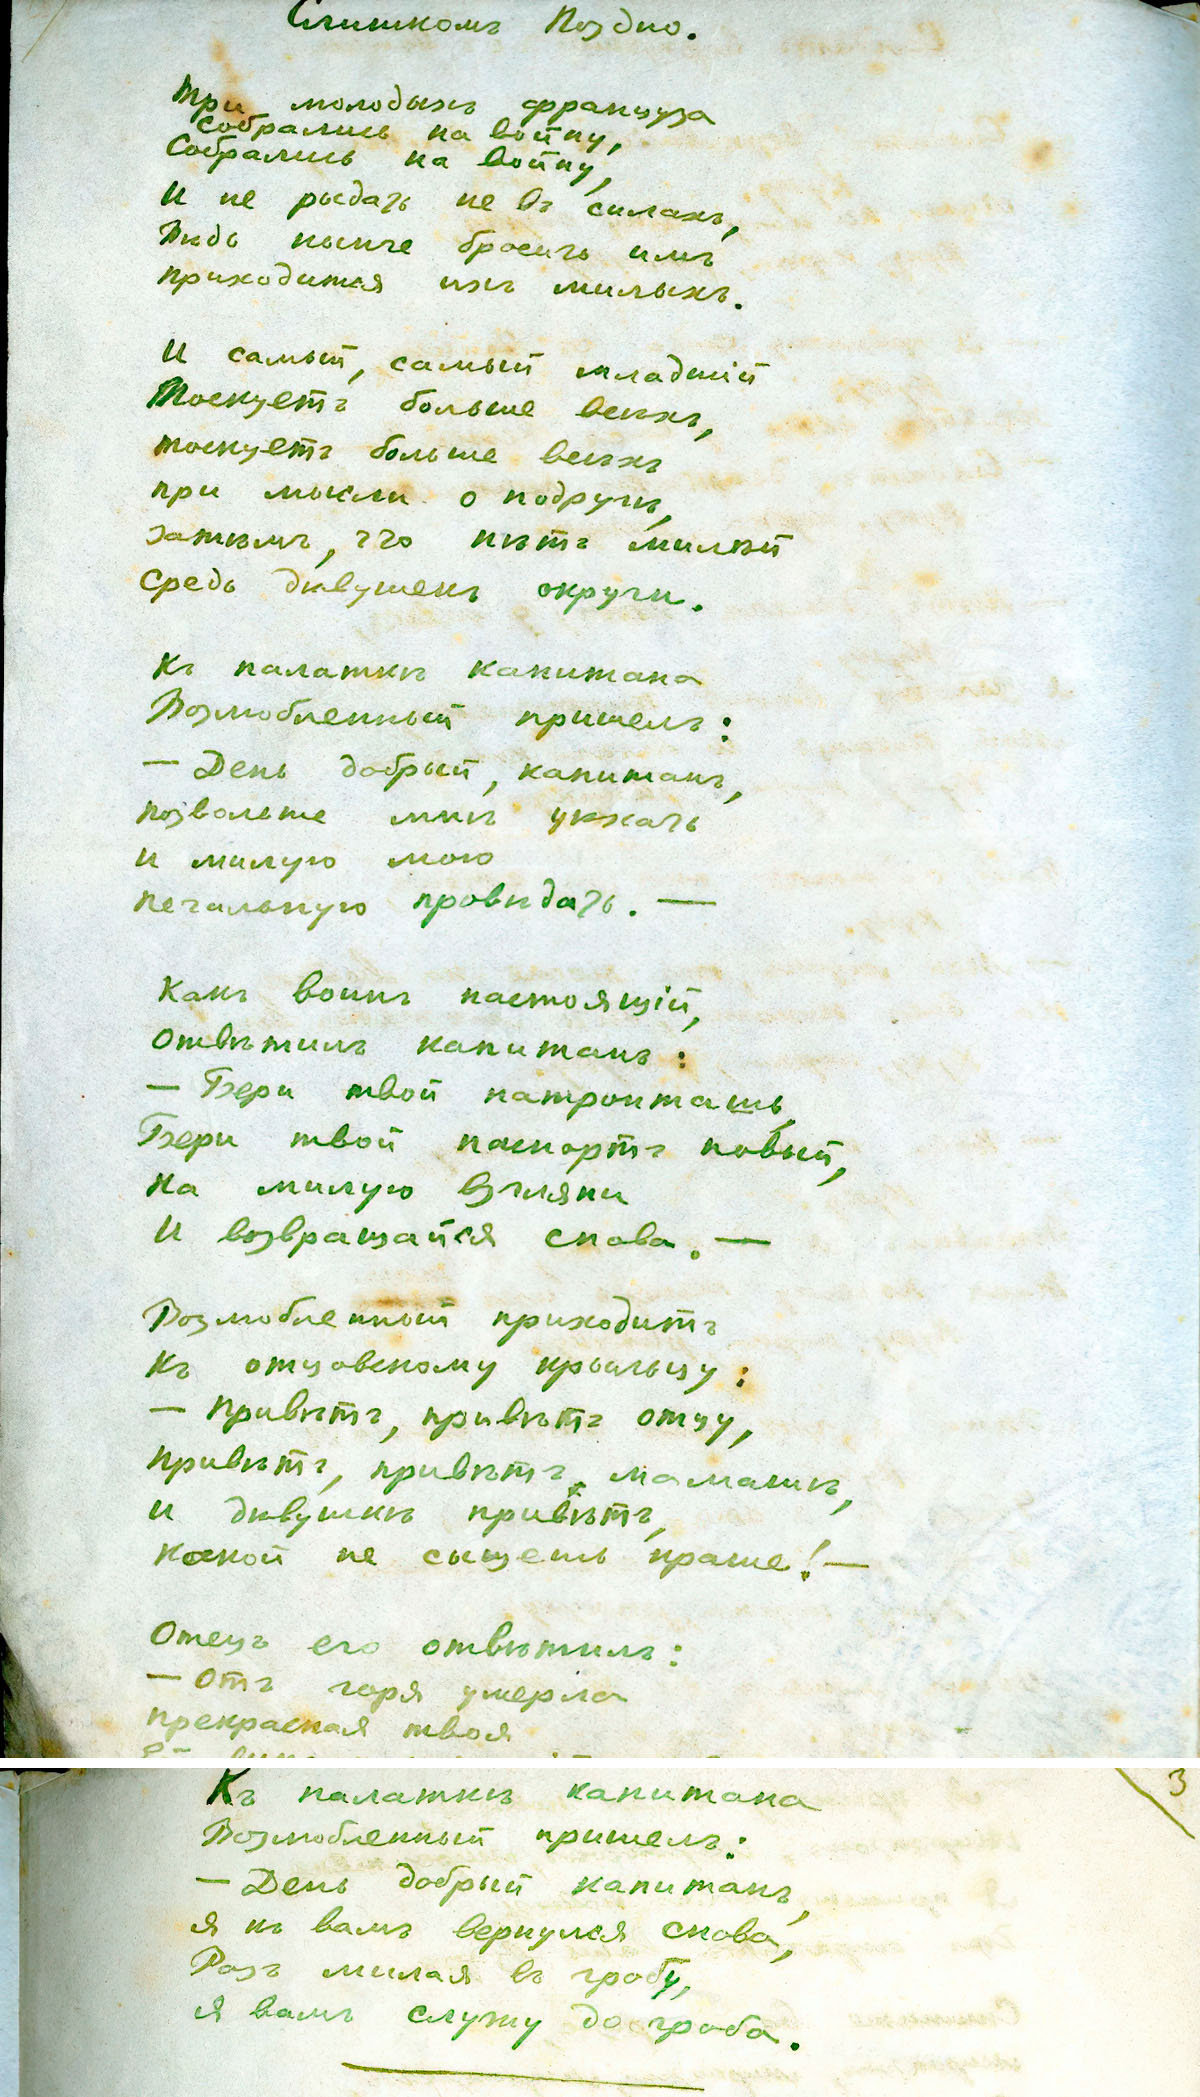 Слишкомъ Поздно.
Три молодыхъ француза
Собрались на войну,
Собрались на войну,
И не рыдать не въ силахъ,
Вѣдь нынче бросить имъ
приходится ихъ милыхъ.
И самый, самый младшій
Тоскуетъ больше всѣхъ,
тоскуетъ больше всѣхъ
при мысли о подругѣ,
затѣмъ, что нѣтъ милѣй
средь дѣвушекъ округи.
Къ палаткѣ капитана
Возлюбленный пришелъ:
— День добрый, капитанъ,
позвольте мнѣ уѣхать
и милую мою
печальную провѣдать. —
Какъ воинъ настоящій,
отвѣтилъ капитанъ:
— Бери твой патронташъ,
Бери твой паспортъ новый,
На милую взгляни
И возвращайся снова. —
Возлюбленный приходитъ
Къ отцовскому крыльцу:
— Привѣтъ, привѣтъ отцу,
Привѣтъ, привѣтъ, мамашѣ,
и дѣвушкѣ привѣтъ,
какой не сыщешь краше! —
Отецъ его отвѣтилъ:
— Отъ горя умерла
прекрасная твоя
Къ палаткѣ капитана
Возлюбленный пришелъ:
— День добрый капитанъ,
я къ вамъ вернулся снова,
Разъ милая въ гробу,
я вамъ служу до гроба.
3